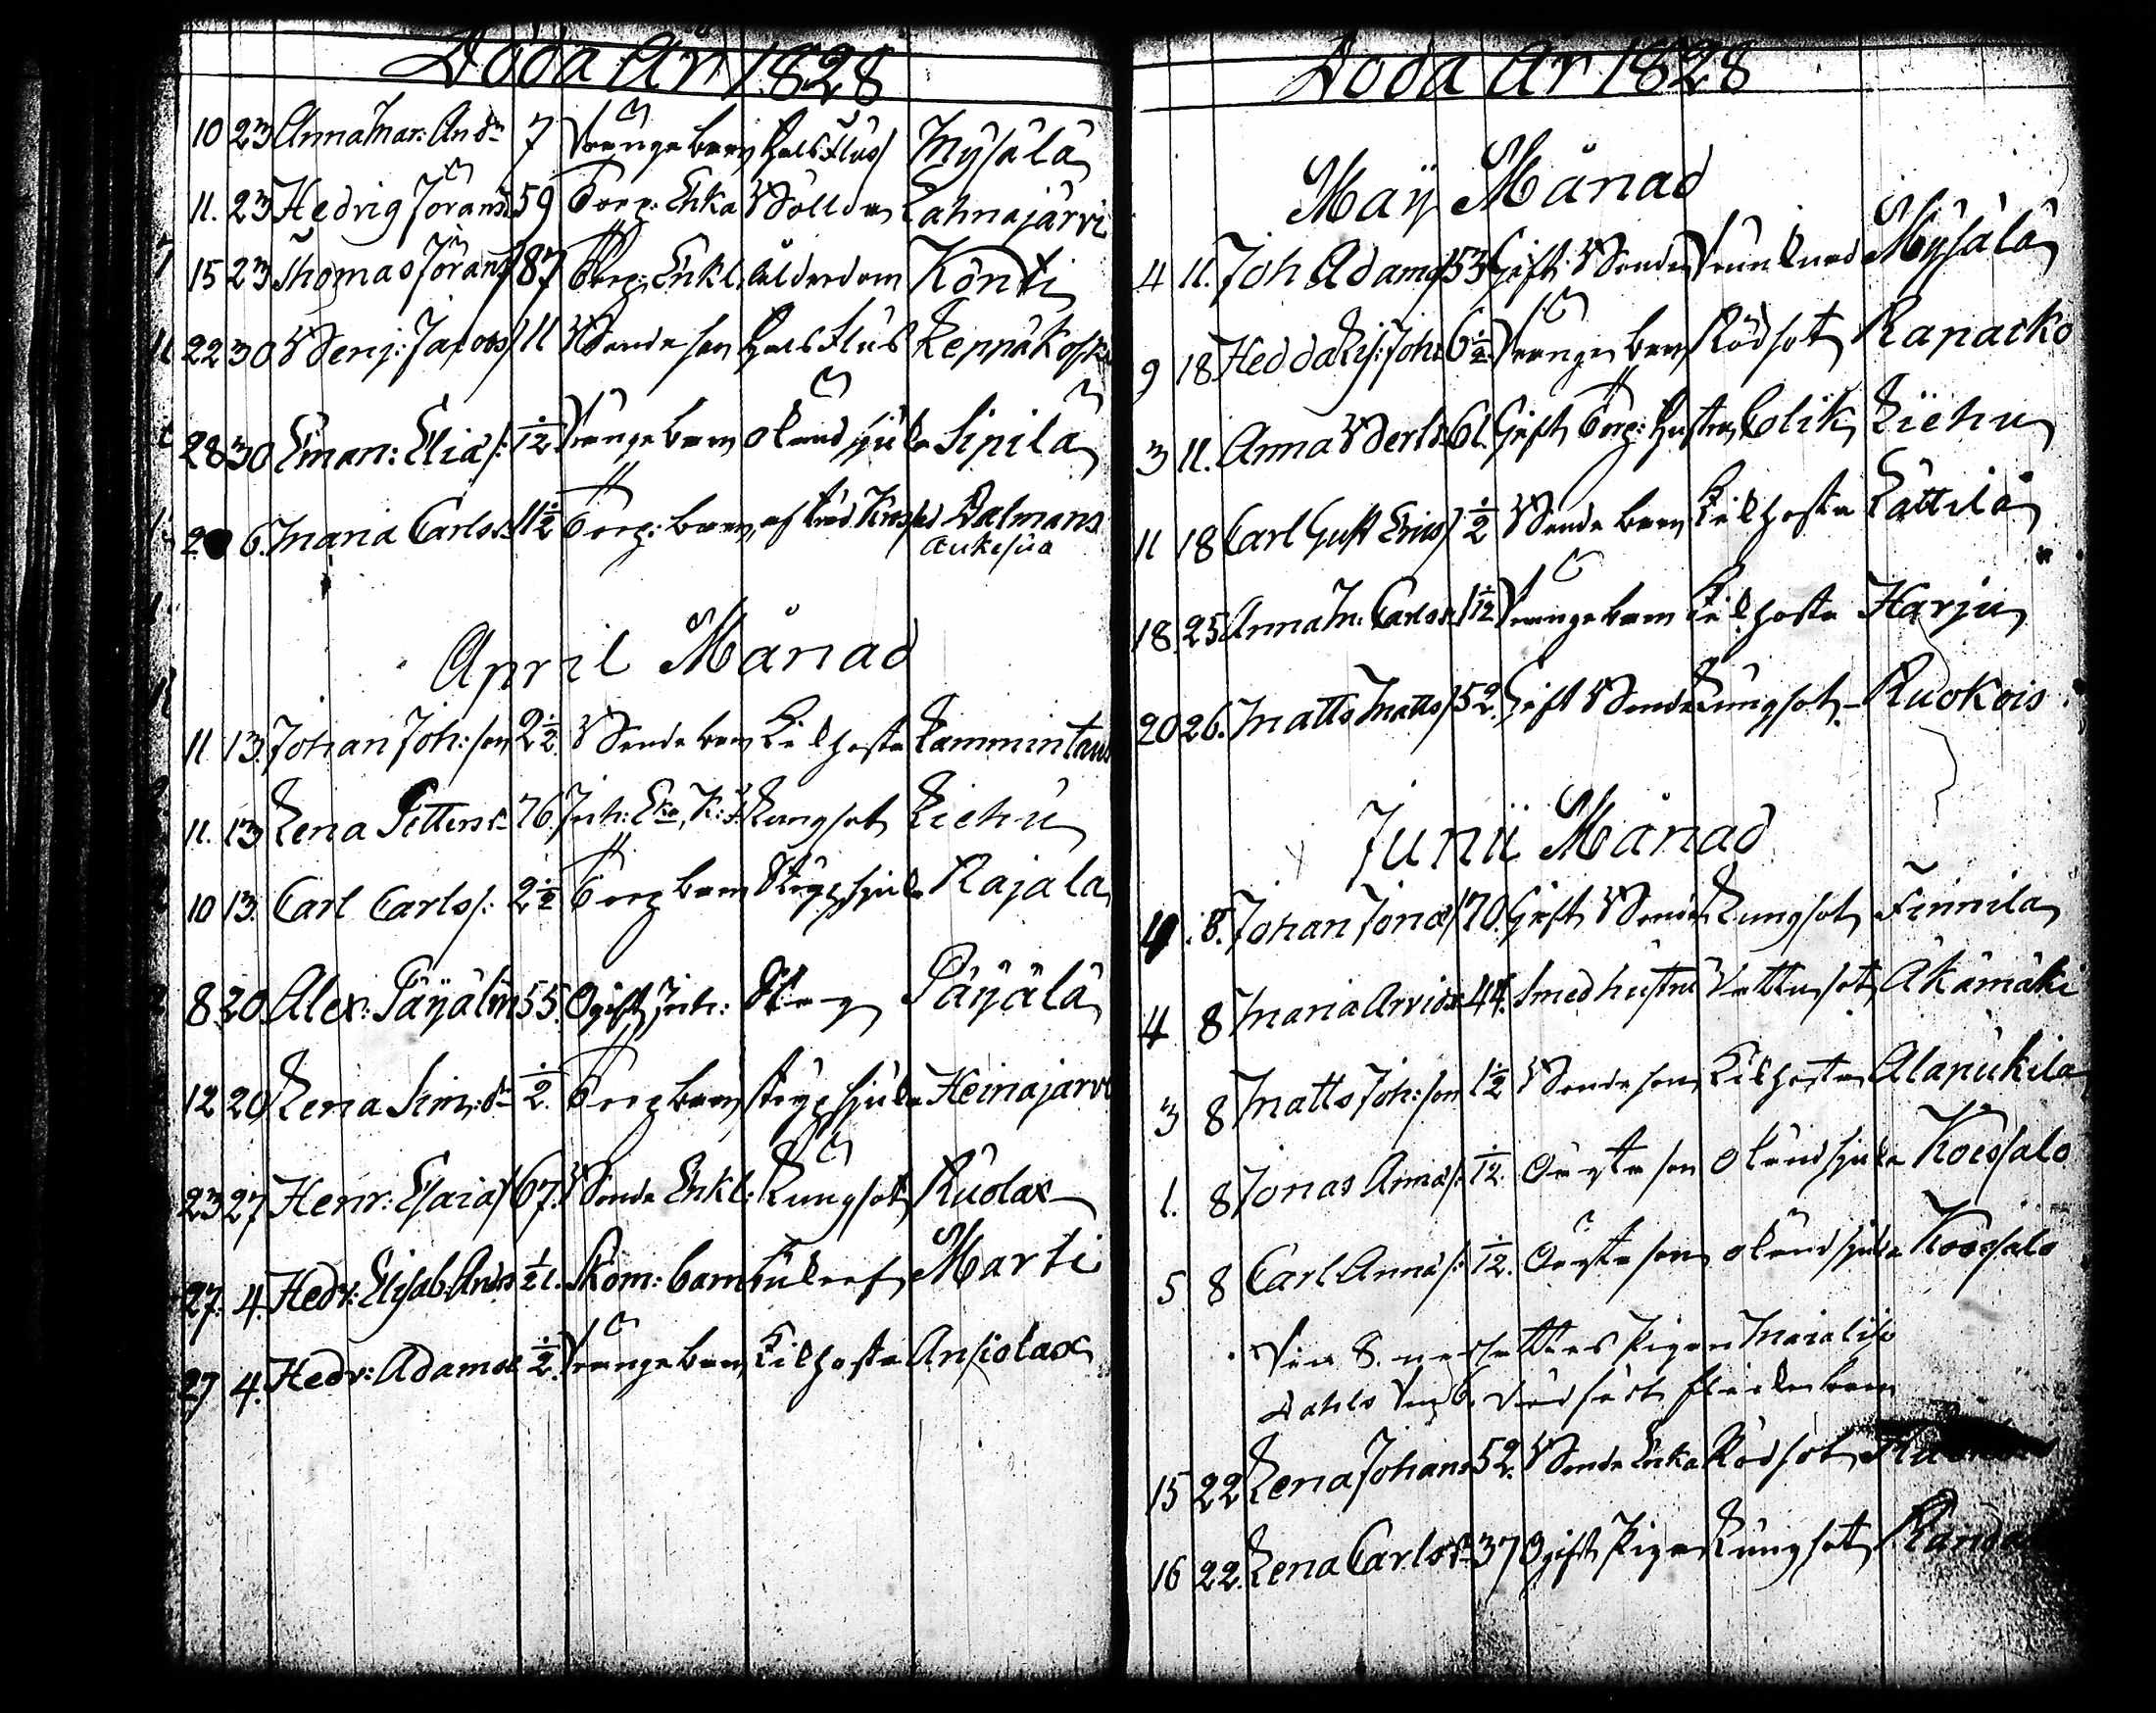 Döda År 1828
10 23 Anna Mar: And:dr 7 Drängebarn Halsflus Mysälä
11. 23 Hedvig Jörans 59 Torp: Enka Bölder Lahnajärvi
15 23 Thomas Jöranss 87 Torp: Enkl: ålderdom Könti
22 30 Benj: Jacobs 11 Bondeson Halsflus Leppäkoski
28 30 Eman: Elias: 1/12 Drängebarn okänd sjuk Sipilä
2 6. Maria Carlsd: 11 1/2 Torp: barn, af träd Krossad Dalmans
Aukesua
April Månad
11 13. Johan Joh:son 2 1/2 Bondebarn Kikhosta Lammintaus
11. 13 Lena Petters dr 76 Inh: Eka, Lungsot Liehu
10 13. Carl Carls: 2 1/2 Torpbarn Strypsjuk Rajala
8. 20 Alex: Päyälin 55. Ogift Inh: Slag Päyälä
12 20 Lena Sim: dr 1/2. Torpbarn strypsjuk Heinajarvi
23 27 Henr: Esaias 67. Bonde Enkl: Lungsot Ruolax
27. 4. Hedv: Elisab: Ands 1/2 Marti
27 4. Hedv: Adamsd 1/2. Drängebarn Kikhosta Ansiolax
Döda År 1828
Maÿ Månad
4 11. Joh Adams 53 Gift Bonde Drunknad Mysälä
9 18 Hedda Lis: Johs 6 1/2. Drängebarn Rödsot Rapacko
3 11. Anna Bertsd 61. Gift Torp: Hustru, Colik Liehu
11 18 Carl Gust Erics 1/2 Bondebarn Kikhosta Lättilä
18. 25 Anna M: Carlsd. 1 1/12 Drängebarn Kikhosta Harju
20 26. Matts Matts 52. Gift Bonde Lungsot Ruokois
Junii Månad
8. Johan Jonas 70. Gift Bonde Lungsot Finnila
4 8 Maria Arvidsd 44. Smedhustru Vattusot Äkämäki
3 8 Matts Joh:son 1 1/2 Bondeson Kikhosta Alapukila
1. 8 Jonas Annas: 1/12. Oägta son okänd sjuk Koissalo
5 8 Carl Annas: 1/12. Oägta son okänd sjuk Koissalo
Den 8. nersattes Pigan Maja Lisa
Dahls Den 6. dödfödt flickebarn
15 22 Lena Johans 52. Bonde Enka Rödsot
16 22. Lena Carls dr 37 Ogift Piga Lungsot